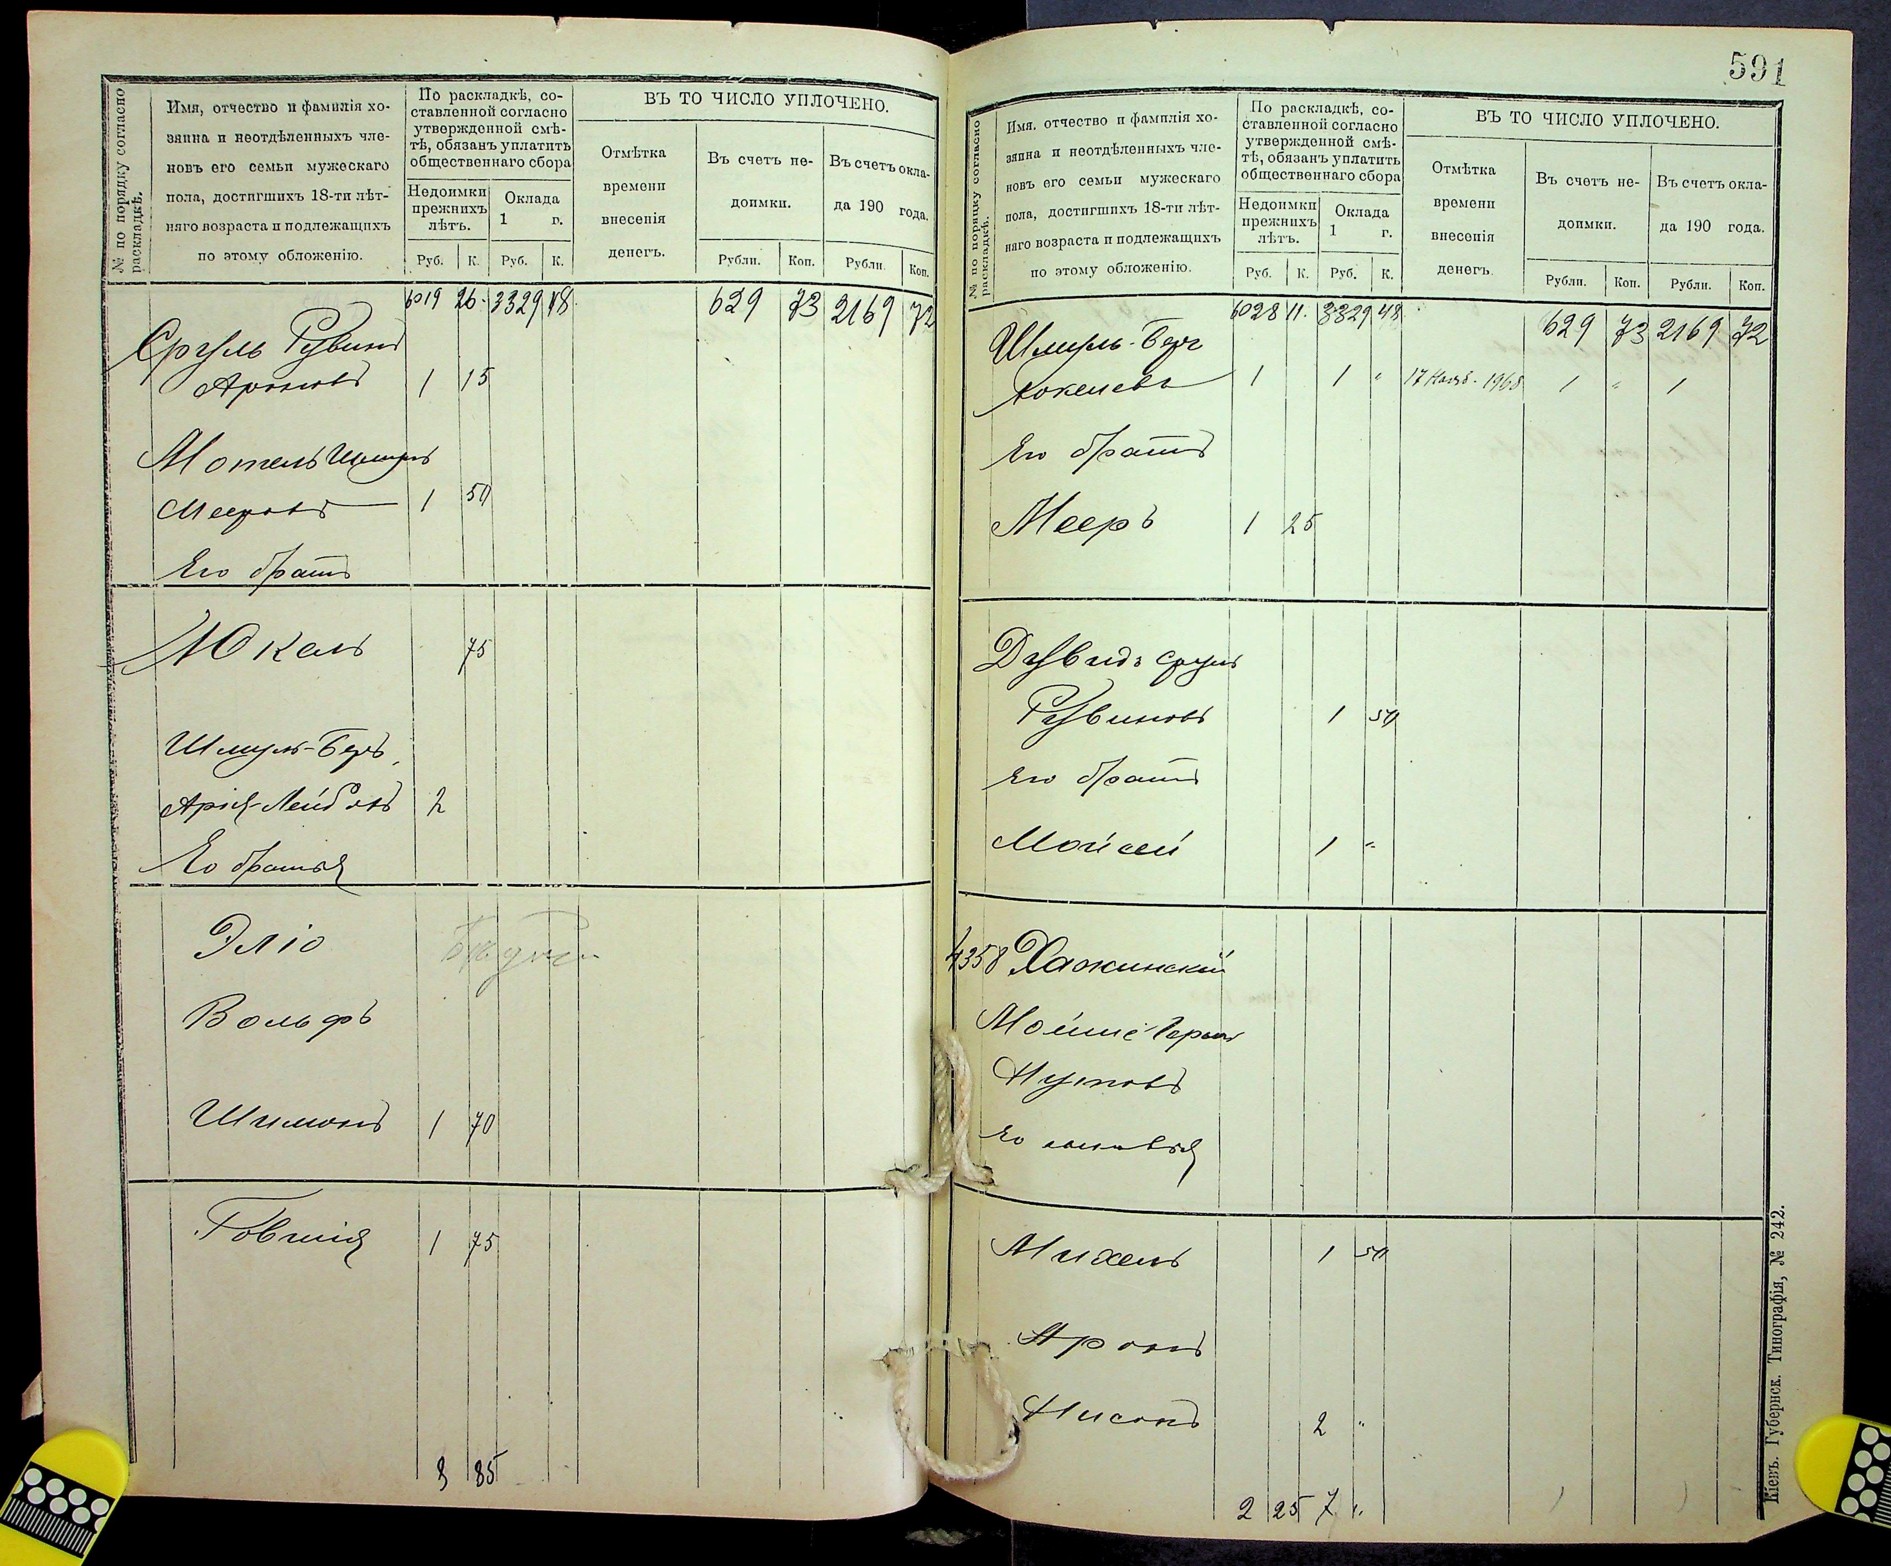 № по порядку согласно
раскладкѣ.
Имя, отчество и фамилія хо-
зяина и неотдѣленныхъ чле-
новъ его семьи мужескаго
пола, достигшихъ 18-ти лѣт-
няго возраста и подлежащихъ
по этому обложенію.
По раскладкѣ, со-
ставленной согласно
утвержденной смѣ-
тѣ, обязанъ уплатить
общественнаго сбора
Недоимки
прежнихъ
лѣтъ.
Оклада
1 г.
Руб. К. Руб. К.
ВЪ ТО ЧИСЛО УПЛОЧЕНО.
Отмѣтка
времени
внесенія
денегъ.
Въ счетъ не-
доимки.
Въ счетъ окла-
да 190 года.
Рубли. Коп. Рубли. Коп.
6019 26 3329 48 629 73 2169 72
Сруль Рувинъ
Ароновъ 1 15
Мотель Шмуль
Мееровъ 1 50
Его братъ
Юкель 75
Шмуль-Беръ
Арія-Лейбовъ 2
Его братья
Эліо
Вольфъ
Шимонъ 1 70
Говшія 1 75
8 85
591
№ по порядку согласно
раскладкѣ.
Имя, отчество и фамилія хо-
зяина и неотдѣленныхъ чле-
новъ его семьи мужескаго
пола, достигшихъ 18-ти лѣт-
няго возраста и подлежащихъ
по этому обложенію.
По раскладкѣ, со-
ставленной согласно
утвержденной смѣ-
тѣ, обязанъ уплатить
общественнаго сбора
Недоимки
прежнихъ
лѣтъ.
Оклада
1 г.
Руб. К. Руб. К.
ВЪ ТО ЧИСЛО УПЛОЧЕНО.
Отмѣтка
времени
внесенія
денегъ.
Въ счетъ не-
доимки.
Въ счетъ окла-
да 190 года.
Рубли. Коп. Рубли. Коп.
6028 11 3329 48 629 73 2169 72
Шмуль-Беръ
1 1 " 17 Нояб. 1908 1 " 1
Его братъ
Мееръ 1 25
Дувидъ Сруль
Рувиновъ 1 50
Его братъ
Мойсей 1 "
4358 Хажинскій
Мойше-Герш
Нутовъ
Его сыновья
Михель 1 50
Аронъ
Нисонъ 2 "
2 25 7 "
Кіевъ. Губернск. Типографія, № 242.